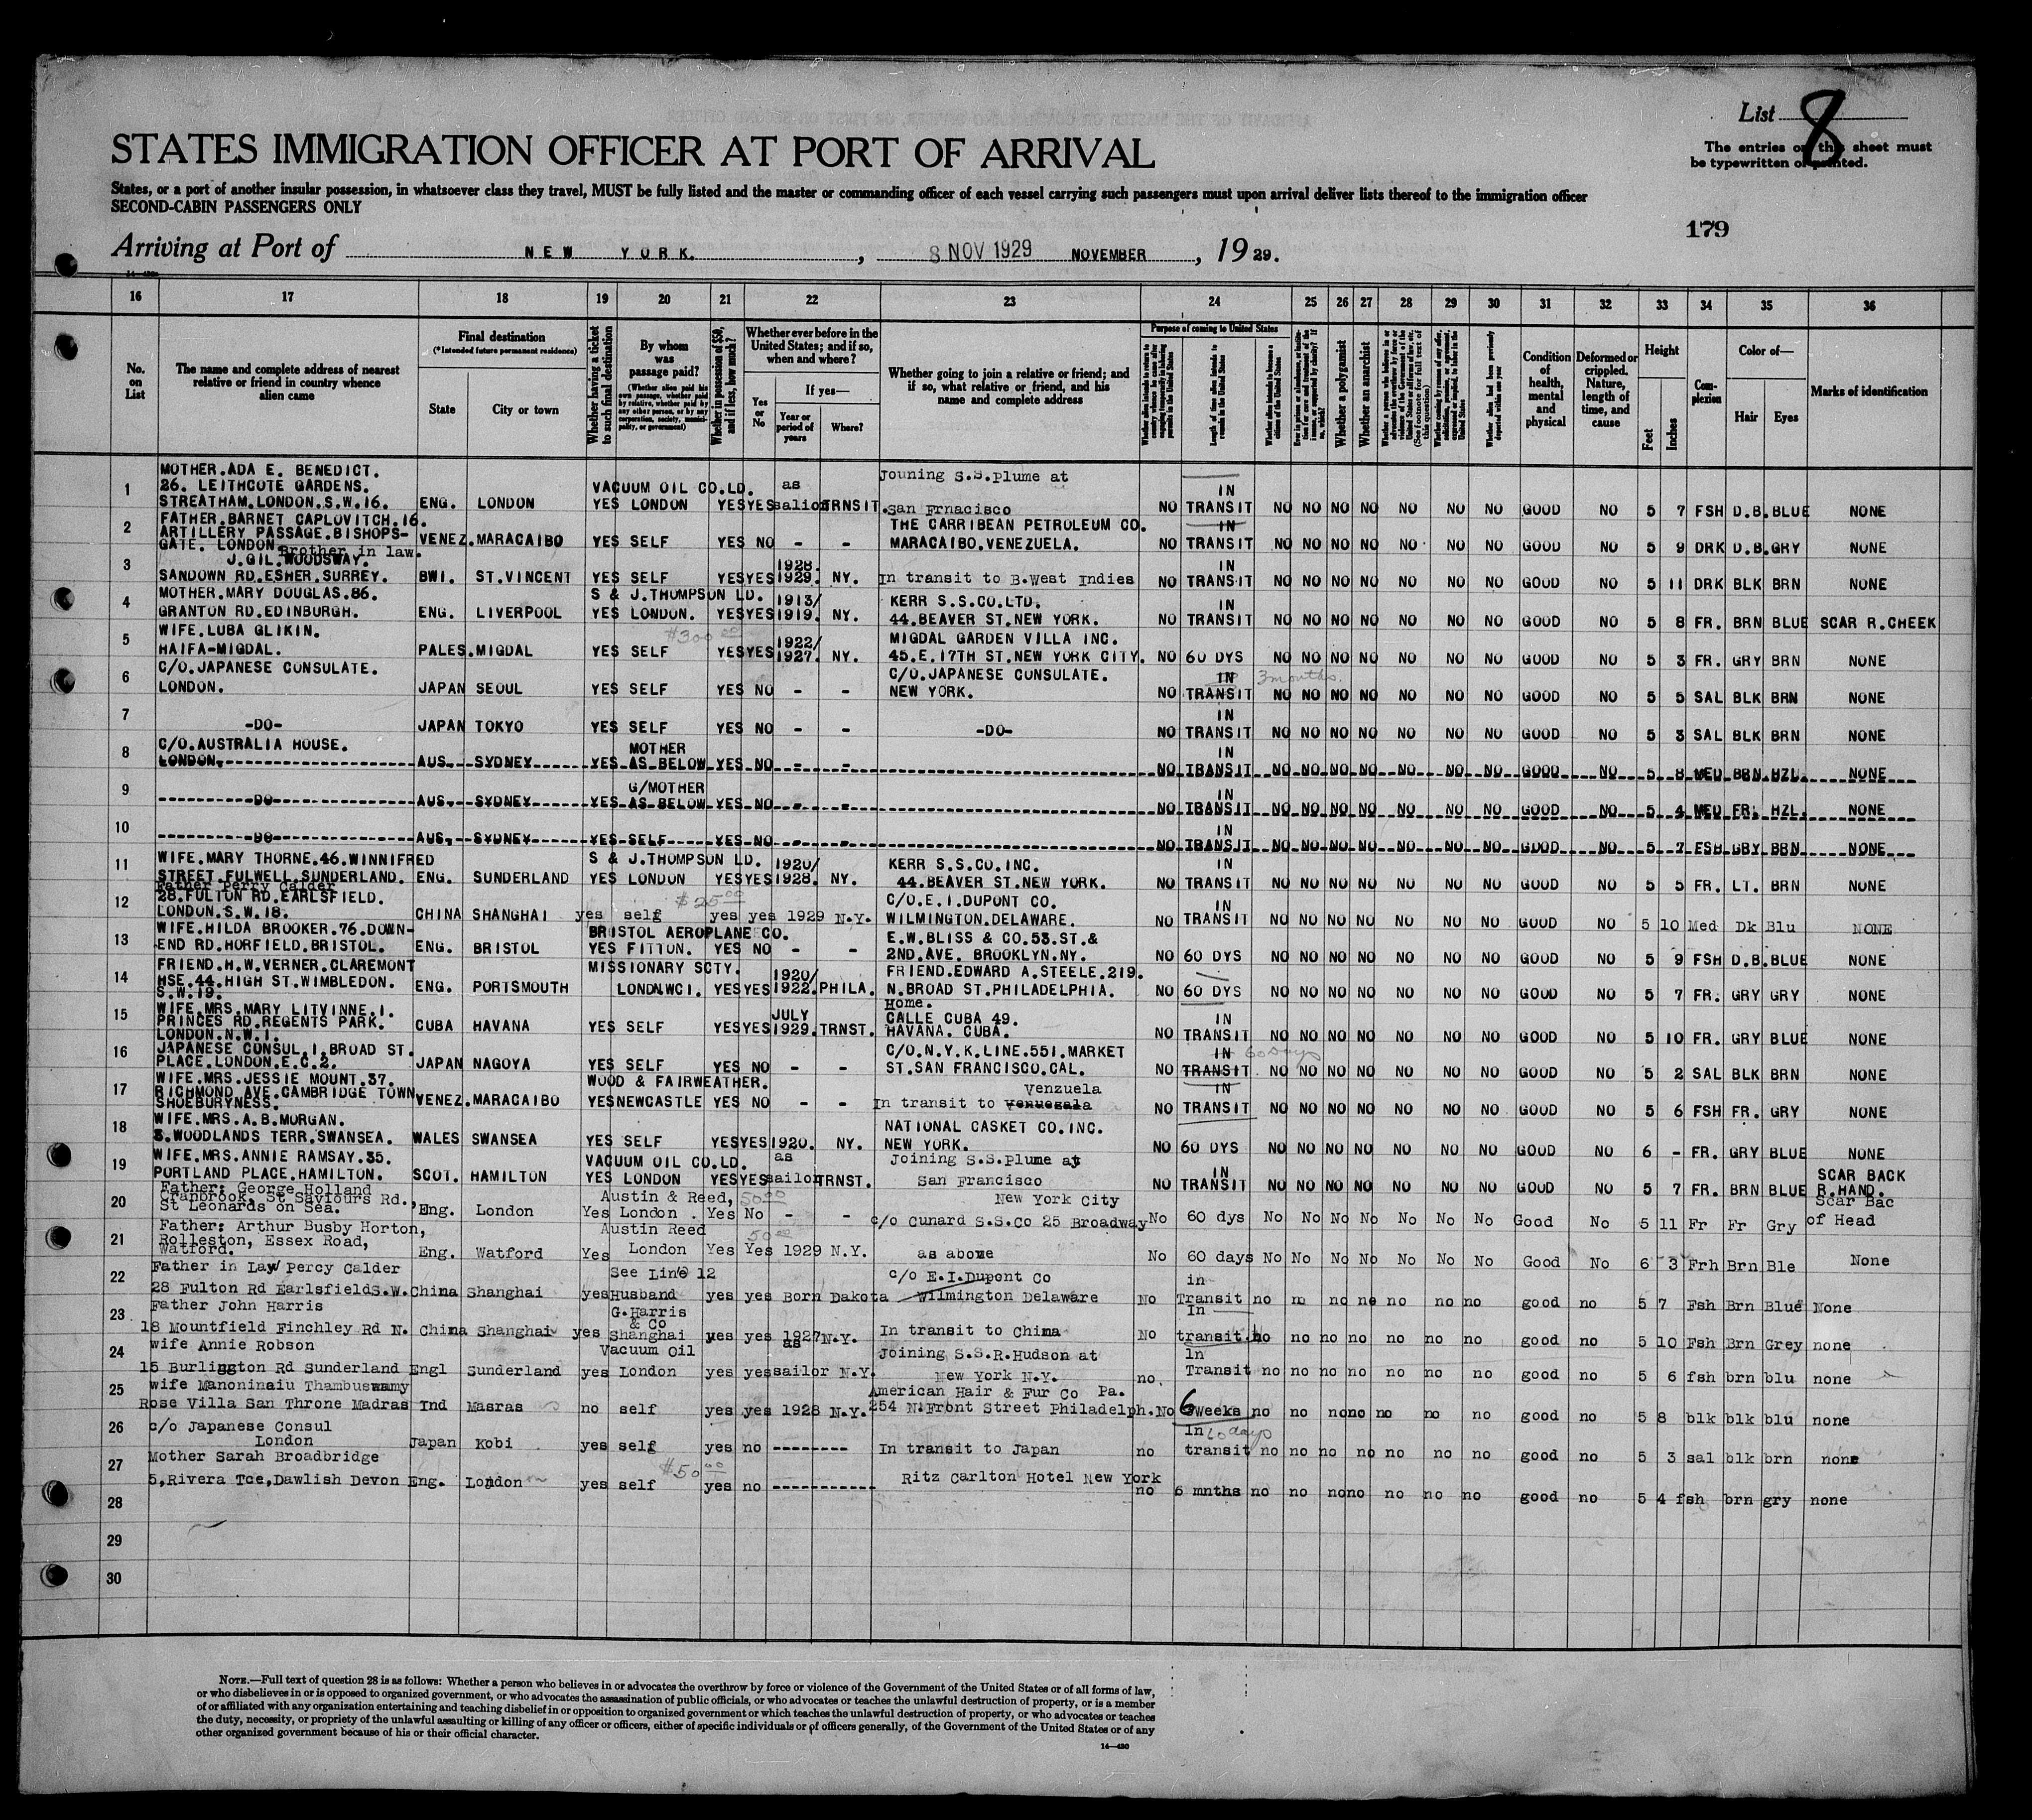 List 8
The entries on this sheet must
be typewritten or printed.
STATES IMMIGRATION OFFICER AT PORT OF ARRIVAL
States, or a port of another insular possession, in whatsoever class they travel, MUST be fully listed and the master or commanding officer of each vessel carrying such passengers must upon arrival deliver lists thereof to the immigration officer
SECOND-CABIN PASSENGERS ONLY
179
Arriving at Port of NEW YORK. , 8 NOV 1929 NOVEMBER , 1929.
14—430
16 17 18 19 20 21 22 23 24 25 26 27 28 29 30 31 32 33 34 35 36
No. on List
The name and complete address of nearest relative or friend in country whence alien came
Final destination
(*Intended future permanent residence)
State City or town
Whether having a ticket to such final destination
By whom was passage paid?
(Whether alien paid his own passage, whether paid by relative, whether paid by any other person, or by any corporation, society, municipality, or government)
Whether in possession of $50, and if less, how much?
Whether ever before in the United States; and if so, when and where?
Yes or No
If yes—
Year or period of years
Where?
Whether going to join a relative or friend; and if so, what relative or friend, and his name and complete address
Purpose of coming to United States
Length of time alien intends to remain in the United States
Whether alien intends to become a citizen of the United States
Whether a polygamist
Whether an anarchist
Condition of health, mental and physical
Deformed or crippled. Nature, length of time, and cause
Height
Feet Inches
Complexion
Color of—
Hair Eyes
Marks of identification
1 MOTHER.ADA E. BENEDICT. 26. LEITHCOTE GARDENS. STREATHAM.LONDON.S.W.16. ENG. LONDON YES VACUUM OIL CO.LD. LONDON YES YES as sailor TRNSIT. Jouning S.S.Plume at San Frnacisco NO IN TRANSIT NO NO NO NO NO NO NO GOOD NO 5 7 FSH D.B. BLUE NONE
2 FATHER.BARNET CAPLOVITCH.16. ARTILLERY PASSAGE.BISHOPS-GATE. LONDON. VENEZ. MARACAIBO YES SELF YES NO - - THE CARRIBEAN PETROLEUM CO. MARACAIBO.VENEZUELA. NO IN TRANSIT NO NO NO NO NO NO NO GOOD NO 5 9 DRK D.B. GRY NONE
3 Brother in law. J.GIL.WOODSWAY. SANDOWN RD.ESHER.SURREY. BWI. ST.VINCENT YES SELF YES YES 1928. 1929. NY. In transit to B.West Indies NO IN TRANSIT NO NO NO NO NO NO NO GOOD NO 5 11 DRK BLK BRN NONE
4 MOTHER.MARY DOUGLAS.86. GRANTON RD.EDINBURGH. ENG. LIVERPOOL YES S & J.THOMPSON LD. LONDON. YES YES 1913/ 1919. NY. KERR S.S.CO.LTD. 44.BEAVER ST.NEW YORK. NO IN TRANSIT NO NO NO NO NO NO NO GOOD NO 5 8 FR. BRN BLUE SCAR R.CHEEK
5 WIFE.LUBA GLIKIN. HAIFA-MIGDAL. PALES. MIGDAL YES SELF $300 00 YES YES 1922/ 1927. NY. MIGDAL GARDEN VILLA INC. 45.E.17TH ST.NEW YORK CITY. NO 60 DYS NO NO NO NO NO NO NO GOOD NO 5 3 FR. GRY BRN NONE
6 C/O.JAPANESE CONSULATE. LONDON. JAPAN SEOUL YES SELF YES NO - - C/O.JAPANESE CONSULATE. NEW YORK. NO IN TRANSIT 3 months. NO NO NO NO NO NO NO GOOD NO 5 5 SAL BLK BRN NONE
7 -DO- JAPAN TOKYO YES SELF YES NO - - -DO- NO IN TRANSIT NO NO NO NO NO NO NO GOOD NO 5 3 SAL BLK BRN NONE
8 C/O.AUSTRALIA HOUSE. LONDON. AUS. SYDNEY YES MOTHER AS BELOW YES NO - - NO IN TRANSIT NO NO NO NO NO NO NO GOOD NO 5 8 MED BRN HZL. NONE
9 -DO- AUS. SYDNEY YES G/MOTHER AS BELOW YES NO - - NO IN TRANSIT NO NO NO NO NO NO NO GOOD NO 5 4 MED FR. HZL. NONE
10 -DO- AUS. SYDNEY YES SELF YES NO - - NO IN TRANSIT NO NO NO NO NO NO NO GOOD NO 5 7 FSH GRY BRN NONE
11 WIFE.MARY THORNE.46.WINNIFRED STREET.FULWELL.SUNDERLAND. ENG. SUNDERLAND YES S & J.THOMPSON LD. LONDON YES YES 1920/ 1928. NY. KERR S.S.CO.INC. 44.BEAVER ST.NEW YORK. NO IN TRANSIT NO NO NO NO NO NO NO GOOD NO 5 5 FR. LT. BRN NONE
12 Father Percy Calder 28.FULTON RD.EARLSFIELD. LONDON.S.W.18. CHINA SHANGHAI yes self $25 00 yes yes 1929 N.Y. C/O.E.I.DUPONT CO. WILMINGTON.DELAWARE. NO IN TRANSIT NO NO NO NO NO NO NO GOOD NO 5 10 Med Dk Blu NONE
13 WIFE.HILDA BROOKER.76.DOWN-END RD.HORFIELD.BRISTOL. ENG. BRISTOL YES BRISTOL AEROPLANE CO. FITTON. YES NO - - E.W.BLISS & CO.53.ST.& 2ND.AVE. BROOKLYN.NY. NO 60 DYS NO NO NO NO NO NO NO GOOD NO 5 9 FSH D.B. BLUE NONE
14 FRIEND.H.W.VERNER.CLAREMONT HSE.44.HIGH ST.WIMBLEDON. S.W.19. ENG. PORTSMOUTH MISSIONARY SCTY. LONDN.WC1. YES YES 1920/ 1922. PHILA. FRIEND.EDWARD A.STEELE.219. N.BROAD ST.PHILADELPHIA. NO 60 DYS NO NO NO NO NO NO NO GOOD NO 5 7 FR. GRY GRY NONE
15 WIFE.MRS.MARY LITVINNE.1. PRINCES RD.REGENTS PARK. LONDON.N.W.1. CUBA HAVANA YES SELF YES YES JULY 1929. TRNST. Home. CALLE CUBA 49. HAVANA. CUBA. NO IN TRANSIT NO NO NO NO NO NO NO GOOD NO 5 10 FR. GRY BLUE NONE
16 JAPANESE CONSUL.1.BROAD ST. PLACE.LONDON.E.C.2. JAPAN NAGOYA YES SELF YES NO - - C/O.N.Y.K.LINE.551.MARKET ST.SAN FRANCISCO.CAL. NO IN TRANSIT 60 days NO NO NO NO NO NO NO GOOD NO 5 2 SAL BLK BRN NONE
17 WIFE.MRS.JESSIE MOUNT.37. RICHMOND AVE.CAMBRIDGE TOWN SHOEBURYNESS. VENEZ. MARACAIBO YES WOOD & FAIRWEATHER. NEWCASTLE YES NO - - In transit to venuezala Venzuela NO IN TRANSIT NO NO NO NO NO NO NO GOOD NO 5 6 FSH FR. GRY NONE
18 WIFE.MRS.A.B.MORGAN. 3.WOODLANDS TERR.SWANSEA. WALES SWANSEA YES SELF YES YES 1920. NY. NATIONAL CASKET CO.INC. NEW YORK. NO 60 DYS NO NO NO NO NO NO NO GOOD NO 6 - FR. GRY BLUE NONE
19 WIFE.MRS.ANNIE RAMSAY.35. PORTLAND PLACE.HAMILTON. SCOT. HAMILTON YES VACUUM OIL CO.LD. LONDON YES YES as sailor TRNST. Joining S.S.Plume at San Francisco NO IN TRANSIT NO NO NO NO NO NO NO GOOD NO 5 7 FR. BRN BLUE SCAR BACK R.HAND.
20 Father: George Holland Cranbrook, St Saviours Rd., St Leonards on Sea. Eng. London Yes Austin & Reed, London. 50 00 Yes No - - New York City c/o Cunard S.S.Co 25 Broadway No 60 dys No No No No No No No Good No 5 11 Fr Fr Gry Scar Bac of Head
21 Father: Arthur Busby Horton, Rolleston, Essex Road, Watford. Eng. Watford Yes Austin Reed London 50 00 Yes Yes 1929 N.Y. as above No 60 days No No No No No No No Good No 6 3 Frh Brn Ble None
22 Father in Law Percy Calder 28 Fulton Rd Earlsfield S.W. China Shanghai yes See Line 12 Husband yes yes Born Dakota c/o E.I.Dupont Co Wilmington Delaware No in Transit no no no no no no no good no 5 7 Fsh Brn Blue None
23 Father John Harris 18 Mountfield Finchley Rd N. China Shanghai yes G.Harris & Co Shanghai yes yes 1927 N.Y. In transit to China No In transit no no no no no no no good no 5 10 Fsh Brn Grey none
24 wife Annie Robson 15 Burlington Rd Sunderland Engl Sunderland yes Vacuum Oil London yes yes as sailor N.Y. Joining S.S.R.Hudson at New York N.Y. no. In Transit no no no no no no no good no 5 6 fsh brn blu none
25 wife Manoninaiu Thambuswamy Rose Villa San Throne Madras Ind Masras no self yes yes 1928 N.Y. American Hair & Fur Co Pa. 254 N.Front Street Philadelph. No 6 weeks no no no no no no no good no 5 8 blk blk blu none
26 c/o Japanese Consul London Japan Kobi yes self yes no -------- In transit to Japan no In transit 60 days no no no no no no no good no 5 3 sal blk brn none
27 Mother Sarah Broadbridge 5,Rivera Tce,Dawlish Devon Eng. London yes self $50 00 yes no ----------- Ritz Carlton Hotel New York no 6 mnths no no no no no no no good no 5 4 fsh brn gry none
28
29
30
NOTE.—Full text of question 28 is as follows: Whether a person who believes in or advocates the overthrow by force or violence of the Government of the United States or of all forms of law,
or who disbelieves in or is opposed to organized government, or who advocates the assassination of public officials, or who advocates or teaches the unlawful destruction of property, or is a member
of or affiliated with any organization entertaining and teaching disbelief in or opposition to organized government or which teaches the unlawful destruction of property, or who advocates or teaches
the duty, necessity, or propriety of the unlawful assaulting or killing of any officer or officers, either of specific individuals or of officers generally, of the Government of the United States or of any
other organized government because of his or their official character.
14—430